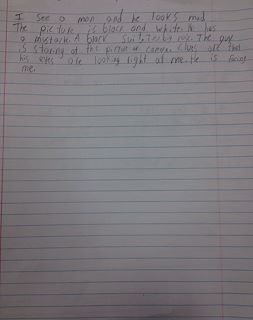 I see a man and he looks mad
The picture is black and white. He has
a mustache. A black suit, The guy
is staring at the picture camera. Clues are that
his eyes are looking right at me. He is facing
me.